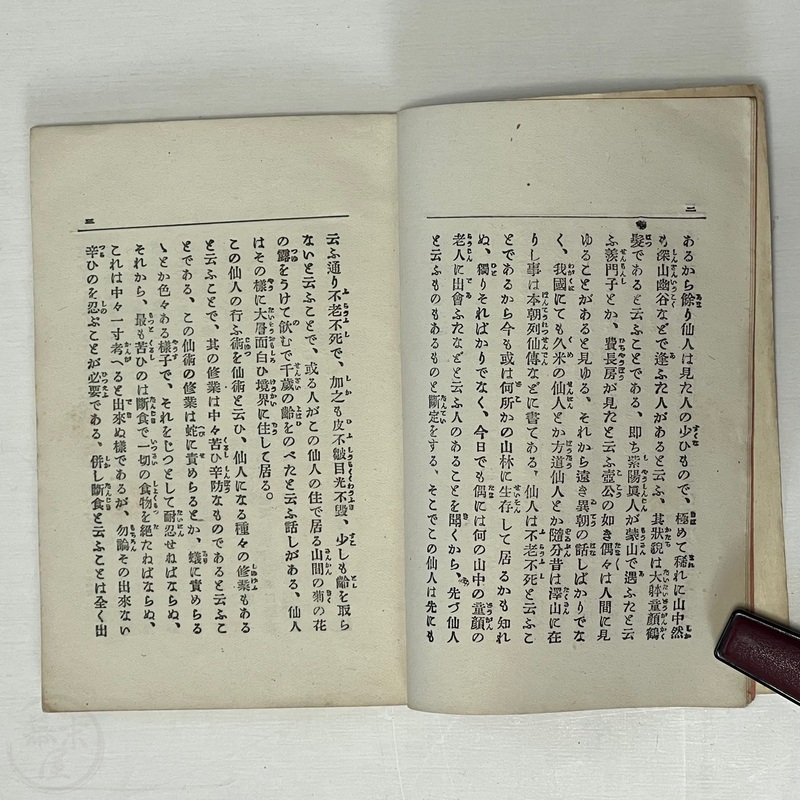 二
あるから餘り仙人は見た人の少ひもので、極めて稀れに山中然
も深山幽谷などで逢ふた人があると云ふ、其狀貌は大躰童顏鶴
髮であると云ふことである、即ち紫陽眞人が蒙山で遇ふたと云
ふ羨門子とか、費長房が見たと云ふ壺公の如き偶々は人間に見
ゆることがあると見ゆる、それから遠き異朝の話しばかりでな
く、我國にても久米の仙人とか方道仙人とか隨分昔は澤山に在
りし事は本朝列仙傳などに書てある、仙人は不老不死と云ふこ
とであるから今も或は何所かの山林に生存して居るかも知れ
ぬ、獨りそればかりでなく、今日でも偶には何の山中の童顏の
老人に出會ふたなどと云ふ人のあることを聞くから、先づ仙人
と云ふものもあるものと斷定をする、そこでこの仙人は先にも
三
云ふ通り不老不死で、加之も皮不皺目光不毀、少しも齡を取ら
ないと云ふことで、或る人がこの仙人の住で居る山間の菊の花
の露をうけて飮むで千歲の齡をのべたと云ふ話しがある、仙人
はその樣に大層面白ひ境界に住して居る。
この仙人の行ふ術を仙術と云ひ、仙人になる種々の修業もある
と云ふことで、其の修業は中々苦ひ辛防なものであると云ふこ
とである、この仙術の修業は蛇に責めらるとか、蟻に責めらる
ゝとか色々ある樣子で、それをじつとして耐忍せねばならぬ、
それから、最も苦ひのは斷食で一切の食物を絕たねばならぬ、
これは中々一寸考へると出來ぬ樣であるが、勿論その出來ない
辛ひのを忍ぶことが必要である、併し斷食と云ふことは全く出